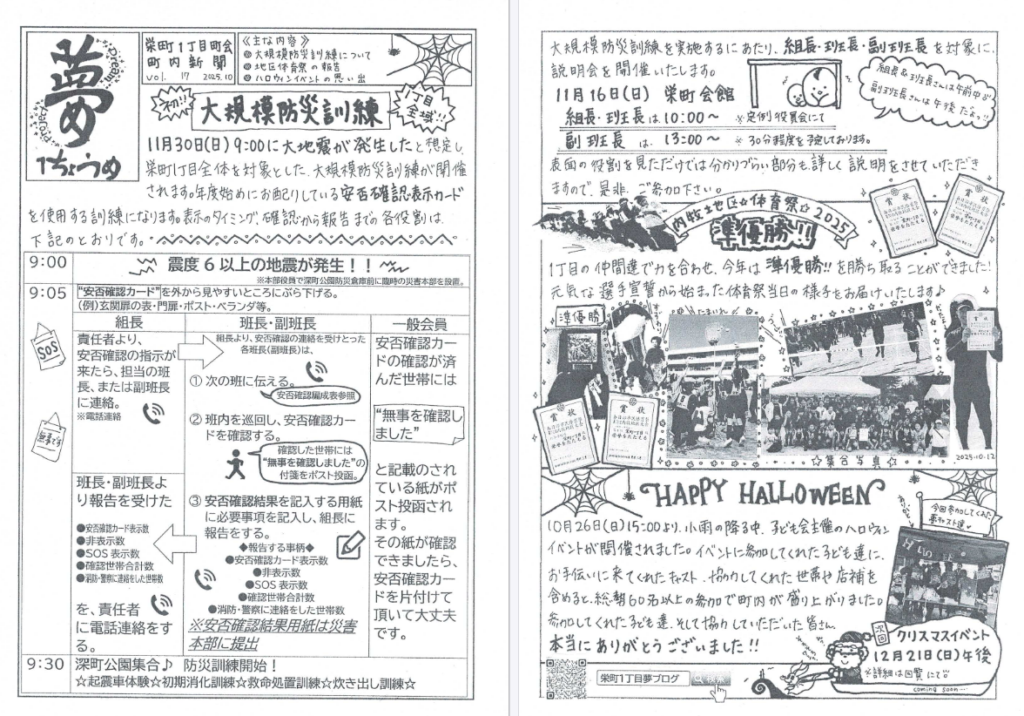 夢め
Dream Project
1ちょうめ
栄町1丁目町会
町内新聞
vol. 17 2025.10
《主な内容》
大規模防災訓練について
地区体育祭の報告
ハロウィンイベントの思い出
初!!
大規模防災訓練
1丁目全域!!
11月30日(日)9:00に大地震が発生したと想定し、
栄町1丁目全体を対象とした、大規模防災訓練が開催
されます。年度始めにお配りしている安否確認表示カード
を使用する訓練になります。表示のタイミング、確認から報告まで各役割は、
下記のとおりです。
9:00
震度6以上の地震が発生!!
※本部役員で深町公園防災倉庫前に臨時の災害本部を設置。
9:05
"安否確認カード"を外から見やすいところにぶら下げる。
(例)玄関扉の表・門扉・ポスト・ベランダ等。
SOS
無事です
組長
責任者より、
安否確認の指示が
来たら、担当の班
長、または副班長
に連絡。
※電話連絡
班長・副班長よ
り報告を受けた
●安否確認カード表示数
●非表示数
●SOS表示数
●確認世帯合計数
●消防・警察に連絡をした世帯数
を、責任者
に電話連絡をす
る。
班長・副班長
組長より、安否確認の連絡を受けとった
各班長(副班長)は、
① 次の班に伝える。
安否確認編成表参照
② 班内を巡回し、安否確認カー
ドを確認する。
確認した世帯には
"無事を確認しました"の
付箋をポスト投函。
③ 安否確認結果を記入する用紙
に必要事項を記入し、組長に
報告をする。
◆報告する事柄◆
●安否確認カード表示数
●非表示数
●SOS 表示数
●確認世帯合計数
●消防・警察に連絡をした世帯数
※安否確認結果用紙は災害
本部に提出
一般会員
安否確認カー
ドの確認が済
んだ世帯には
"無事を確認し
ました"
と記載のされ
ている紙がポ
スト投函され
ます。
その紙が確認
できましたら、
安否確認カー
ドを片付けて
頂いて大丈夫
です。
9:30
深町公園集合♪ 防災訓練開始!
☆起震車体験☆初期消火訓練☆救命処置訓練☆炊き出し訓練☆
大規模防災訓練を実施するにあたり、組長・班長・副班長を対象に、
説明会を開催いたします。
11月16日(日) 栄町会館
組長・班長は10:00〜 ※定例役員会にて
副班長は、13:00〜 ※30分程度を予定しております。
組長&班長さんは午前中♪
副班長さんは午後だよッ!!
表面の役割を見ただけでは分かりづらい部分も、詳しく説明をさせていただき
ますので、是非、ご参加下さい。
内牧地区☆体育祭☆2025
準優勝!!
1丁目の仲間達で力を合わせ、今年は準優勝!!を勝ち取ることができました!
元気な選手宣誓から始まった体育祭当日の様子をお届けいたします♪
準優勝
たまいれ
賞状
賞状
☆集合写真☆
2025.10.12
HAPPY HALLOWEEN
10月26日(日)15:00より、小雨の降る中、子ども会主催のハロウィン
イベントが開催されました。イベントに参加してくれた子ども達に、
お手伝いに来てくれたキャスト、協力してくれた世帯や店舗を
含めると、総勢60名以上の参加で町内が盛り上がりました。
参加してくれた子ども達、そして協力していただいた皆さん、
本当にありがとうございました!!
今回参加してくれた
キャスト達
次回
クリスマスイベント
12月21日(日)午後
※詳細は回覧にて
coming soon…
栄町1丁目夢ブログ
検索